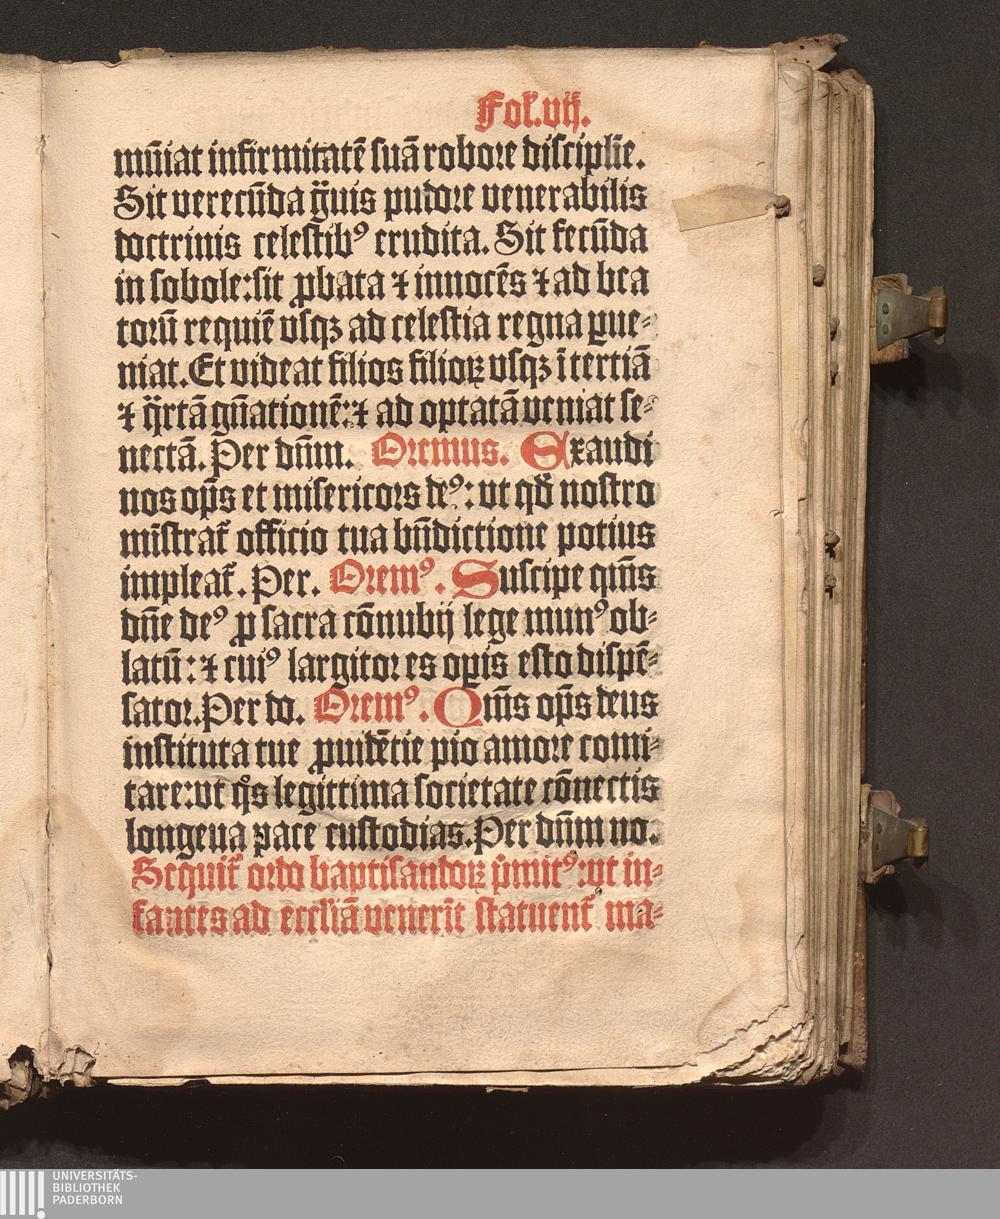 Fol. vij.
mūiat infirmitatē suā robore disciplīe.
Sit verecūda g̃uis pudore venerabilis
doctrinis celestibꝰ erudita. Sit fecūda
in sobole: sit ꝓbata ⁊ innocēs ⁊ ad bea
torū requiē vsqꝫ ad celestia regna ꝑue⸗
niat. Et videat filios filioꝝ vsqꝫ ī tertiā
⁊ q̃rtā gñationē: ⁊ ad optatā veniat se⸗
nectā. Per dñm. Oremus. Exaudi
nos op̄s et misericors deꝰ: vt qd̄ nostro
mīstrat᷑ officio tua bñdictione potius
impleat᷑. Per. Oremꝰ. Suscipe qm̄s
dñe deꝰ ꝓ sacra cōnubij lege munꝰ ob⸗
latū: ⁊ cuiꝰ largitor es opis esto dispē⸗
sator. Per do. Oremꝰ. Qm̄s op̄s deus
instituta tue ꝓuidētie pio amore comi⸗
tare: vt q̊s legittima societate cōnectis
longeua pace custodias. Per dñm no.
Sequit᷑ ordo baptisandoꝝ p̄mitꝰ: vt in⸗
fantes ad eccliā venerīt statuent᷑ ma⸗
UNIVERSITÄTS-
BIBLIOTHEK
PADERBORN